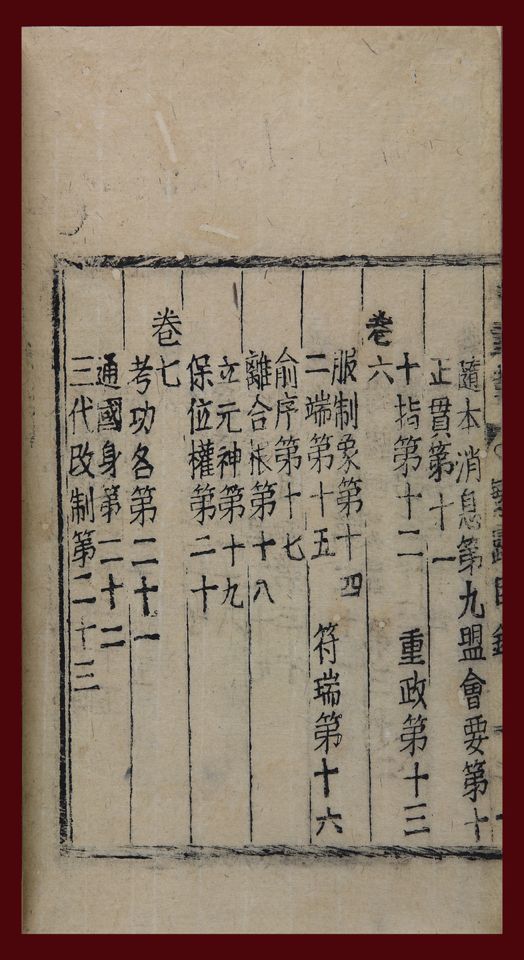 隨本消息第九盟會要第十
正貫第十一
十指第十二　重政第十三
卷六
服制象第十四
二端第十五　符瑞第十六
俞序第十七
離合根第十八
立元神第十九
保位權第二十
卷七
考功各第二十一
通國身第二十二
三代改制第二十三